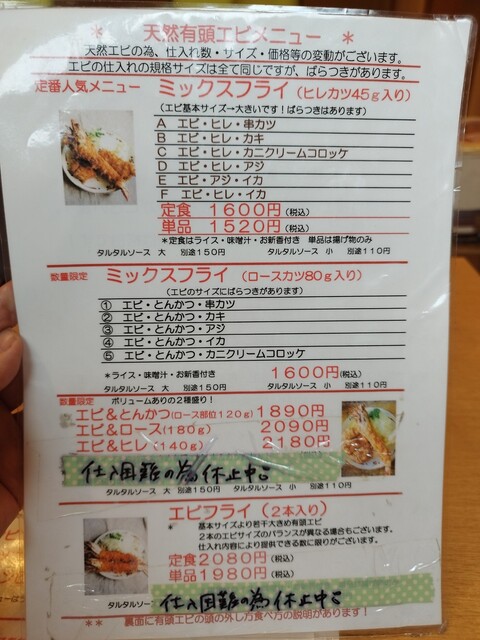 ＊ 天然有頭エビメニュー ＊
天然エビの為、仕入れ数・サイズ・価格等の変動がございます。
エビの仕入れの規格サイズは全て同じですが、ばらつきがあります。
定番人気メニュー ミックスフライ（ヒレカツ45g入り）
（エビ基本サイズ→大きいです！ばらつきはあります）
A エビ・ヒレ・串カツ
B エビ・ヒレ・カキ
C エビ・ヒレ・カニクリームコロッケ
D エビ・ヒレ・アジ
E エビ・アジ・イカ
F エビ・ヒレ・イカ
定食 1600円（税込）
単品 1520円（税込）
＊定食はライス・味噌汁・お新香付き 単品は揚げ物のみ
タルタルソース 大 別途150円 タルタルソース 小 別途110円
数量限定 ミックスフライ（ロースカツ80g入り）
（エビのサイズにばらつきがあります）
① エビ・とんかつ・串カツ
② エビ・とんかつ・カキ
③ エビ・とんかつ・アジ
④ エビ・とんかつ・イカ
⑤ エビ・とんかつ・カニクリームコロッケ
＊ライス・味噌汁・お新香付き 1600円（税込）
タルタルソース 大 別途150円 タルタルソース 小 別途110円
数量限定 ボリュームありの2種盛り！
エビ&とんかつ（ロース部位120g）1890円
エビ&ロース（180g） 2090円
エビ&ヒレ（140g） 2180円
仕入困難の為休止中
タルタルソース 大 別途150円 タルタルソース 小 別途110円
エビフライ（2本入り）
＊ 基本サイズより若干大きめ有頭エビ
2本のエビサイズのバランスが異なる場合もございます。
仕入内容により提供できる数に限りがございます。
定食2080円（税込）
単品1980円（税込）
タルタルソー
仕入困難の為休止中
＊＊ 裏面に有頭エビの頭の外し方食べ方の説明があります！